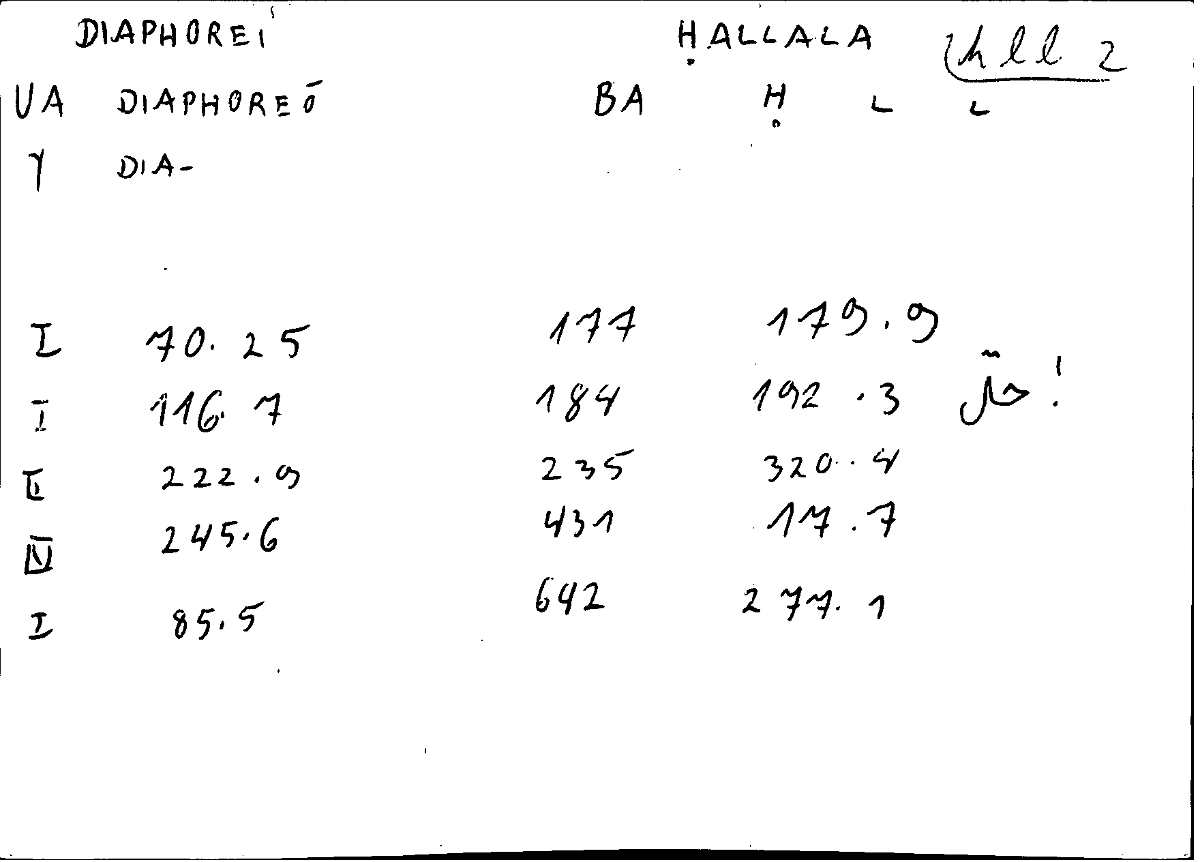 DIAPHOREĨ ḤALLALA ḥll 2
UA DIAPHOREŌ BA Ḥ L L
Y DIA-
I 70.25 177 179.9
I 116.7 184 192.3 حلّ!
II 222.9 235 320.4
IV 245.6 431 17.7
I 85.5 642 277.1